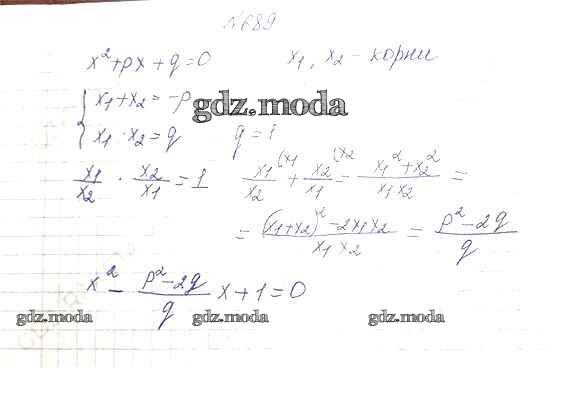 №689
x²+px+q=0 x₁, x₂ - корни
{ x₁+x₂=-p
x₁·x₂=q q=1
gdz.moda
x₁/x₂ · x₂/x₁ = 1 x₁/x₂ (x₁ + x₂/x₁ (x₂ = x₁²+x₂²/x₁x₂ =
= (x₁+x₂)²-2x₁x₂/x₁x₂ = p²-2q/q
x² - p²-2q/q x+1=0
gdz.moda gdz.moda gdz.moda